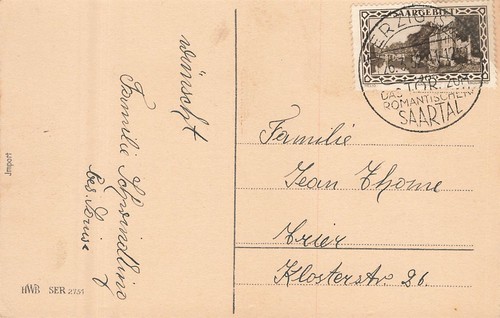 wünscht
Familie Schwindling
bes. Louise
Import
HWB SER 2751
SAARGEBIET
MERZIG
DAS TOR ZUM
ROMANTISCHEN
SAARTAL
Familie
Jean Thome
Trier
Klosterstr. 26.